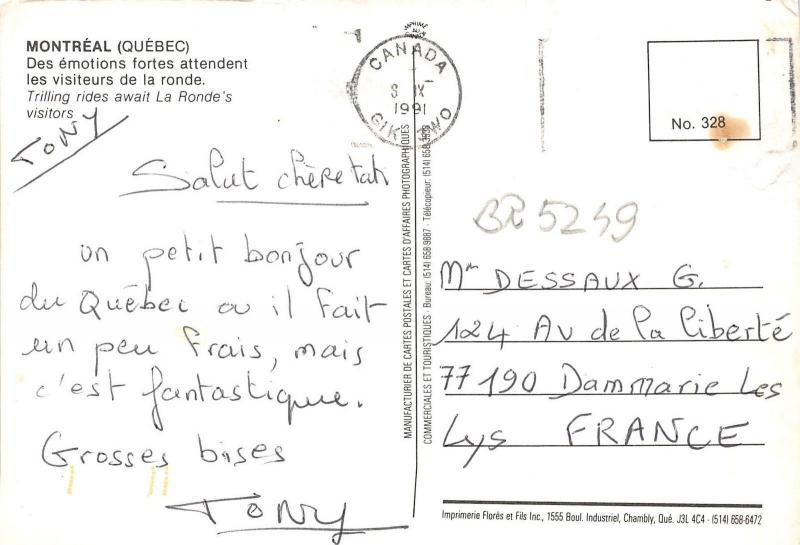 MONTRÉAL (QUÉBEC)
Des émotions fortes attendent
les visiteurs de la ronde.
Trilling rides await La Ronde's
visitors
TONY
Salut chère tah
un petit bonjour
du Québec ou il fait
un peu frais, mais
c'est fantastique.
Grosses bises
TONY
CANADA
1991
MANUFACTURIER DE CARTES POSTALES ET CARTES D'AFFAIRES PHOTOGRAPHIQUES
COMMERCIALES ET TOURISTIQUES - Bureau: (514) 658-9887 - Télécopieur: (514) 658-
No. 328
BR5249
Mm DESSAUX G.
124 Av de la liberté
77190 Dammarie Les
Lys FRANCE
Imprimerie Florès et Fils Inc., 1555 Boul. Industriel, Chambly, Qué. J3L 4C4 - (514) 658-6472